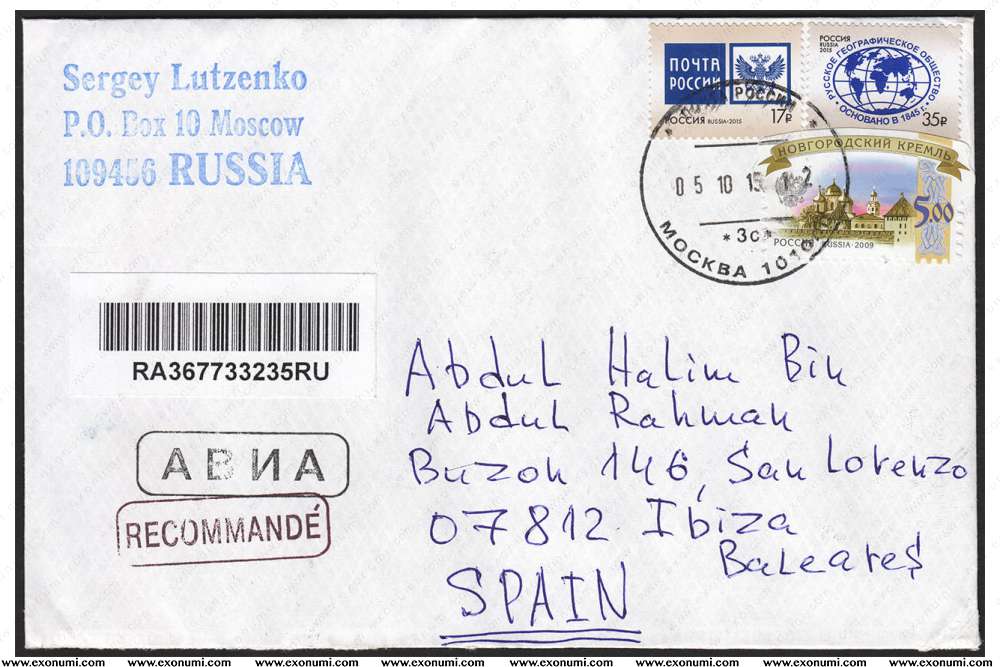 Sergey Lutzenko
P.O. Box 10 Moscow
109456 RUSSIA
ПОЧТА
РОССИИ
РОССИЯ RUSSIA•2015 17₽
РОССИЯ
RUSSIA
2015
РУССКОЕ ГЕОГРАФИЧЕСКОЕ ОБЩЕСТВО
ОСНОВАНО В 1845 г.
35₽
НОВГОРОДСКИЙ КРЕМЛЬ
5.00
РОССИЯ RUSSIA•2009
РОССИИ
05 10 15 12
*3с*
МОСКВА
RA367733235RU
АВИА
RECOMMANDÉ
Abdul Halim Bin
Abdul Rahman
Buzon 146, San Lorenzo
07812 Ibiza
Baleares
SPAIN
www.exonumi.com www.exonumi.com www.exonumi.com www.exonumi.com www.exonumi.com www.exonumi.com www.exonumi.com www.exonumi.com